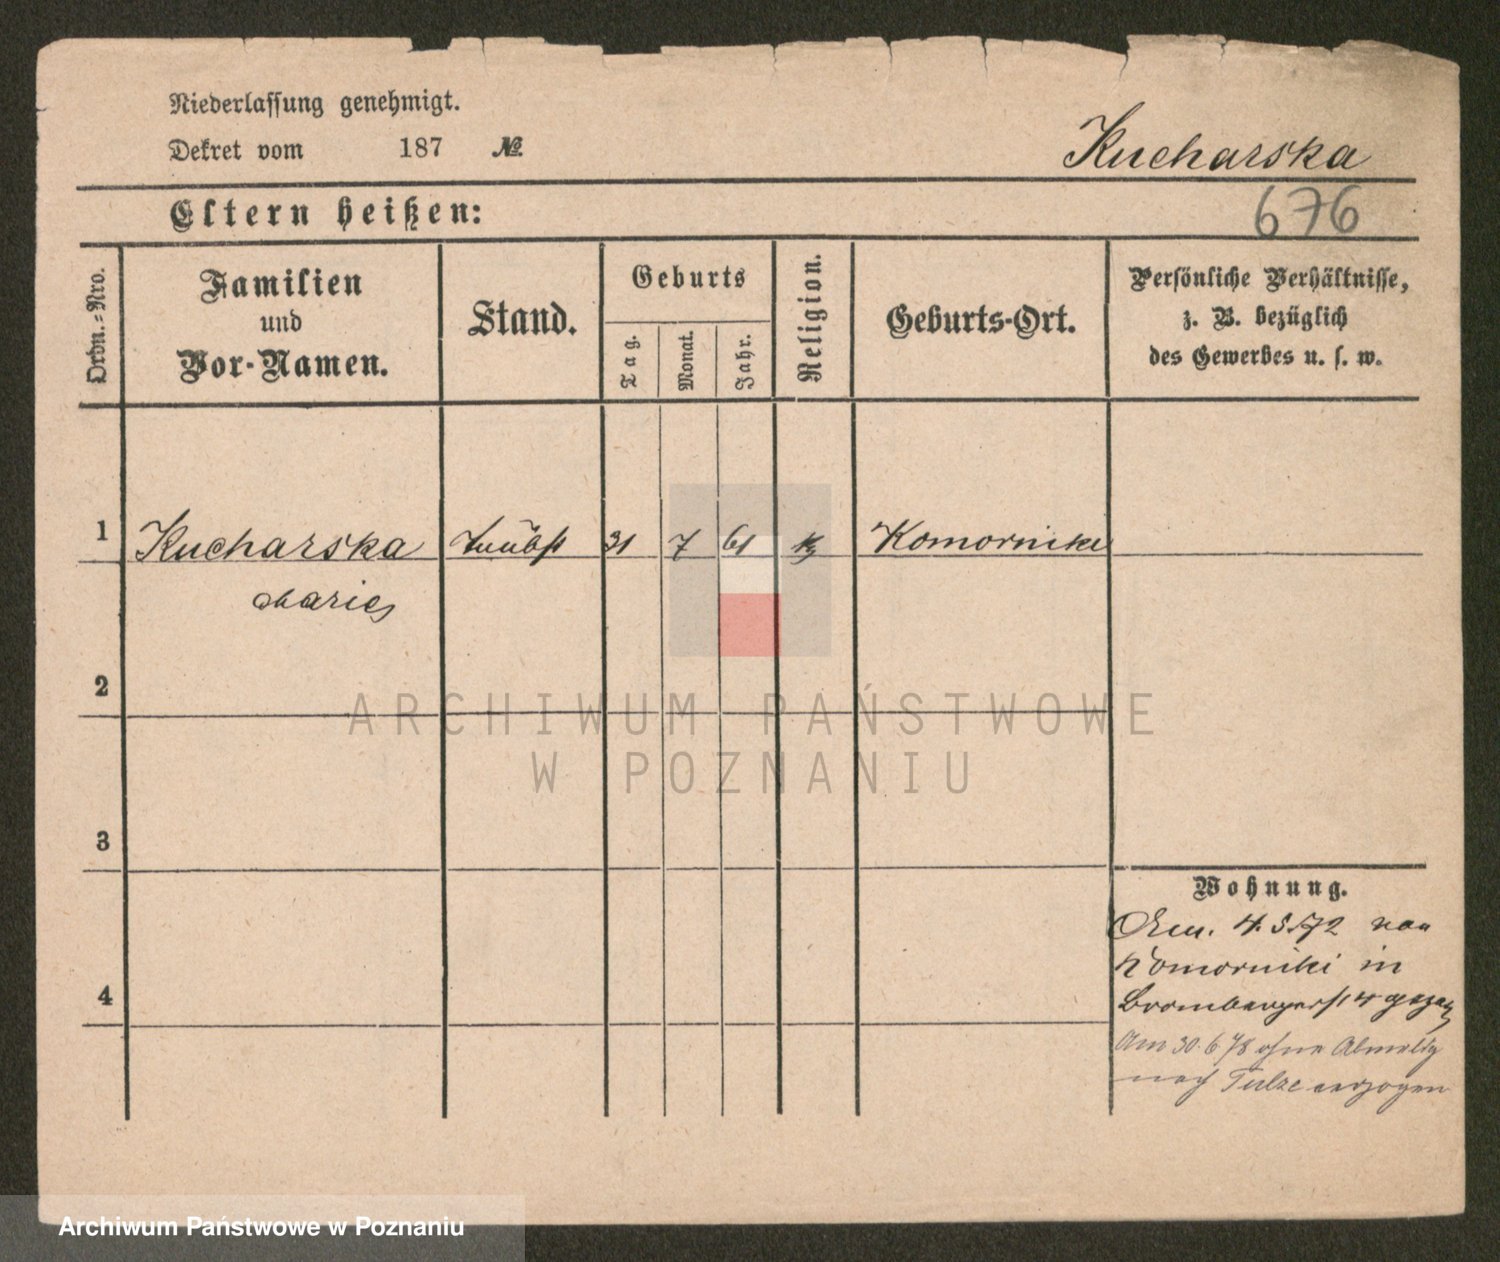 Niederlassung genehmigt.
Dekret vom 187 №.
Kucharska
Eltern heißen:
676
Ordn.-Nro.
Familien
und
Vor-Namen.
Stand.
Geburts
Tag.
Monat.
Jahr.
Religion.
Geburts-Ort.
Persönliche Verhältnisse,
z. B. bezüglich
des Gewerbes u. s. w.
1 Kucharska 31 7 61 Komorniki
Marie
2
3
4
Wohnung.
4. 5. 72 von
Komorniki in
Brombergerst 4
Am 30. 6 78 ohne Abmeldg
nach Tulce verzogen
ARCHIWUM PAŃSTWOWE
W POZNANIU
Archiwum Państwowe w Poznaniu